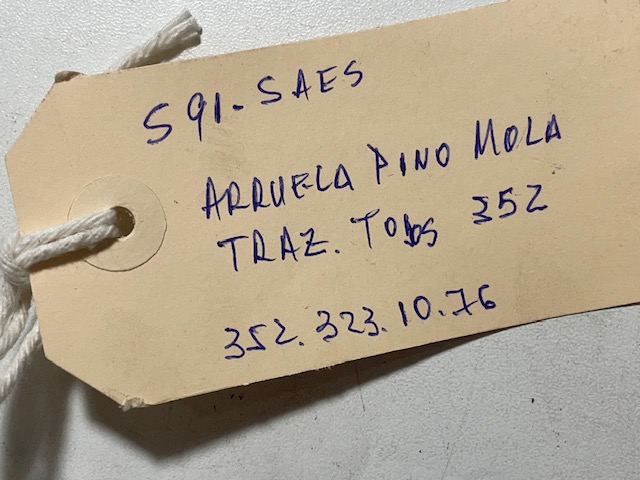 S91-SAES
ARRUELA PINO MOLA
TRAZ. TODOS 352
352.323.10.76